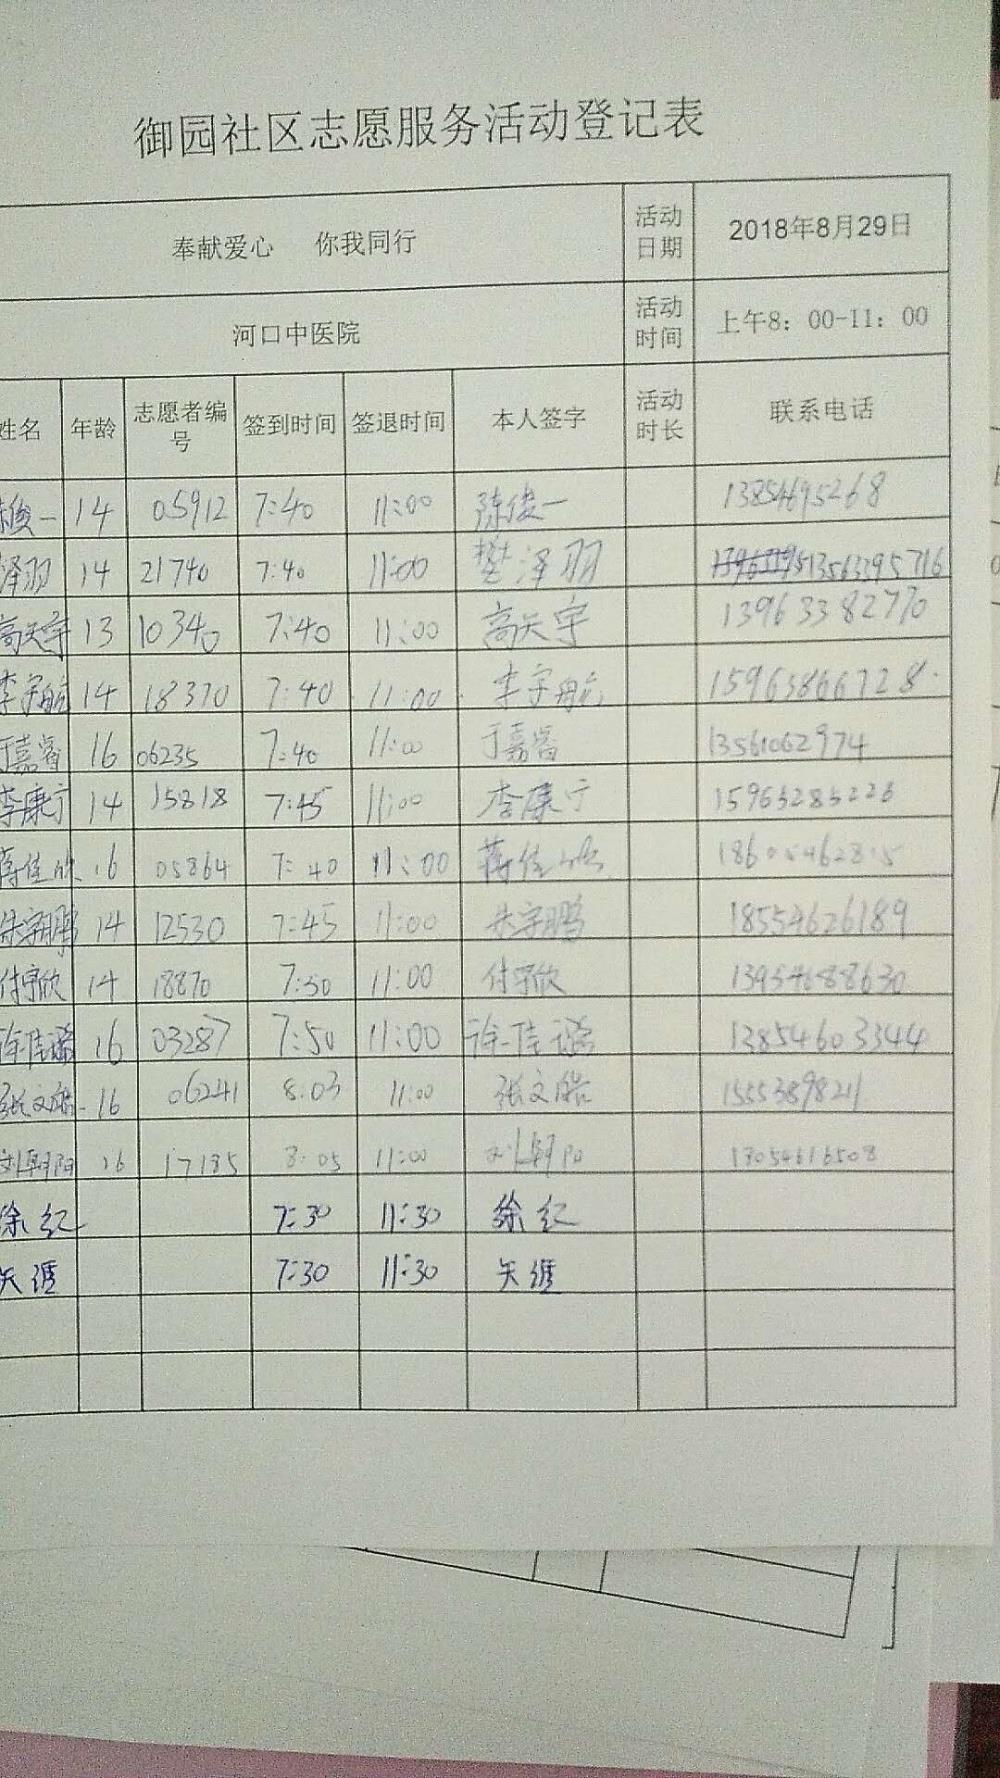 御园社区志愿服务活动登记表
奉献爱心 你我同行 活动日期 2018年8月29日
河口中医院 活动时间 上午8：00-11：00
姓名 年龄 志愿者编号 签到时间 签退时间 本人签字 活动时长 联系电话
陈俊一 14 05912 7:40 11:00 陈俊一 13854695268
泽羽 14 21740 7:40 11:00 樊泽羽 13563395716
高天宇 13 10340 7:40 11:00 高天宇 13963382770
李宇航 14 18370 7:40 11:00 李宇航 15963866728
于嘉睿 16 06235 7:40 11:00 于嘉睿 13561062974
李康宁 14 15818 7:45 11:00 李康宁 15963285226
蒋佳 16 05864 7:40 11:00 蒋佳
朱宇鹏 14 12530 7:45 11:00 朱宇鹏 18554626189
付宇欣 14 18870 7:50 11:00 付宇欣 13954688630
徐佳璐 16 03287 7:50 11:00 徐佳璐 13854603344
张文皓 16 06241 8:03 11:00 张文皓 15553898211
刘朝阳 16 17135 8:05 11:00 刘朝阳 13054616508
徐红 7:30 11:30 徐红
7:30 11:30